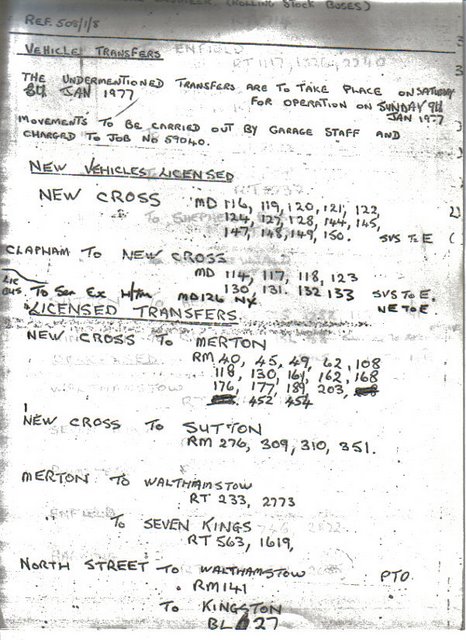 (ROLLING STOCK BUSES)
REF. 508/1/8
VEHICLE TRANSFERS
ENFIELD
THE UNDERMENTIONED TRANSFERS ARE TO TAKE PLACE ON SATURDAY
8th JAN 1977 FOR OPERATION ON SUNDAY 9th
JAN 1977
MOVEMENTS TO BE CARRIED OUT BY GARAGE STAFF AND
CHARGED TO JOB NO 59040.
NEW VEHICLES LICENSED
NEW CROSS MD 116, 119, 120, 121, 122,
124, 127, 128, 144, 145,
147, 148, 149, 150. SVS TO E
CLAPHAM TO NEW CROSS
MD 114, 117, 118, 123
130, 131. 132 133 SVS TO E.
To Ser Ex MD 126 NX NE TO E.
LICENSED TRANSFERS
NEW CROSS TO MERTON
RM 40, 45, 49, 62, 108
118, 130, 161, 162, 168
176, 177, 189, 203,
452 454
NEW CROSS TO SUTTON
RM 276, 309, 310, 351.
MERTON TO WALTHAMSTOW
RT 233, 2773
TO SEVEN KINGS
RT 563, 1619,
NORTH STREET TO WALTHAMSTOW PTO
RM 141
TO KINGSTON
BL 27